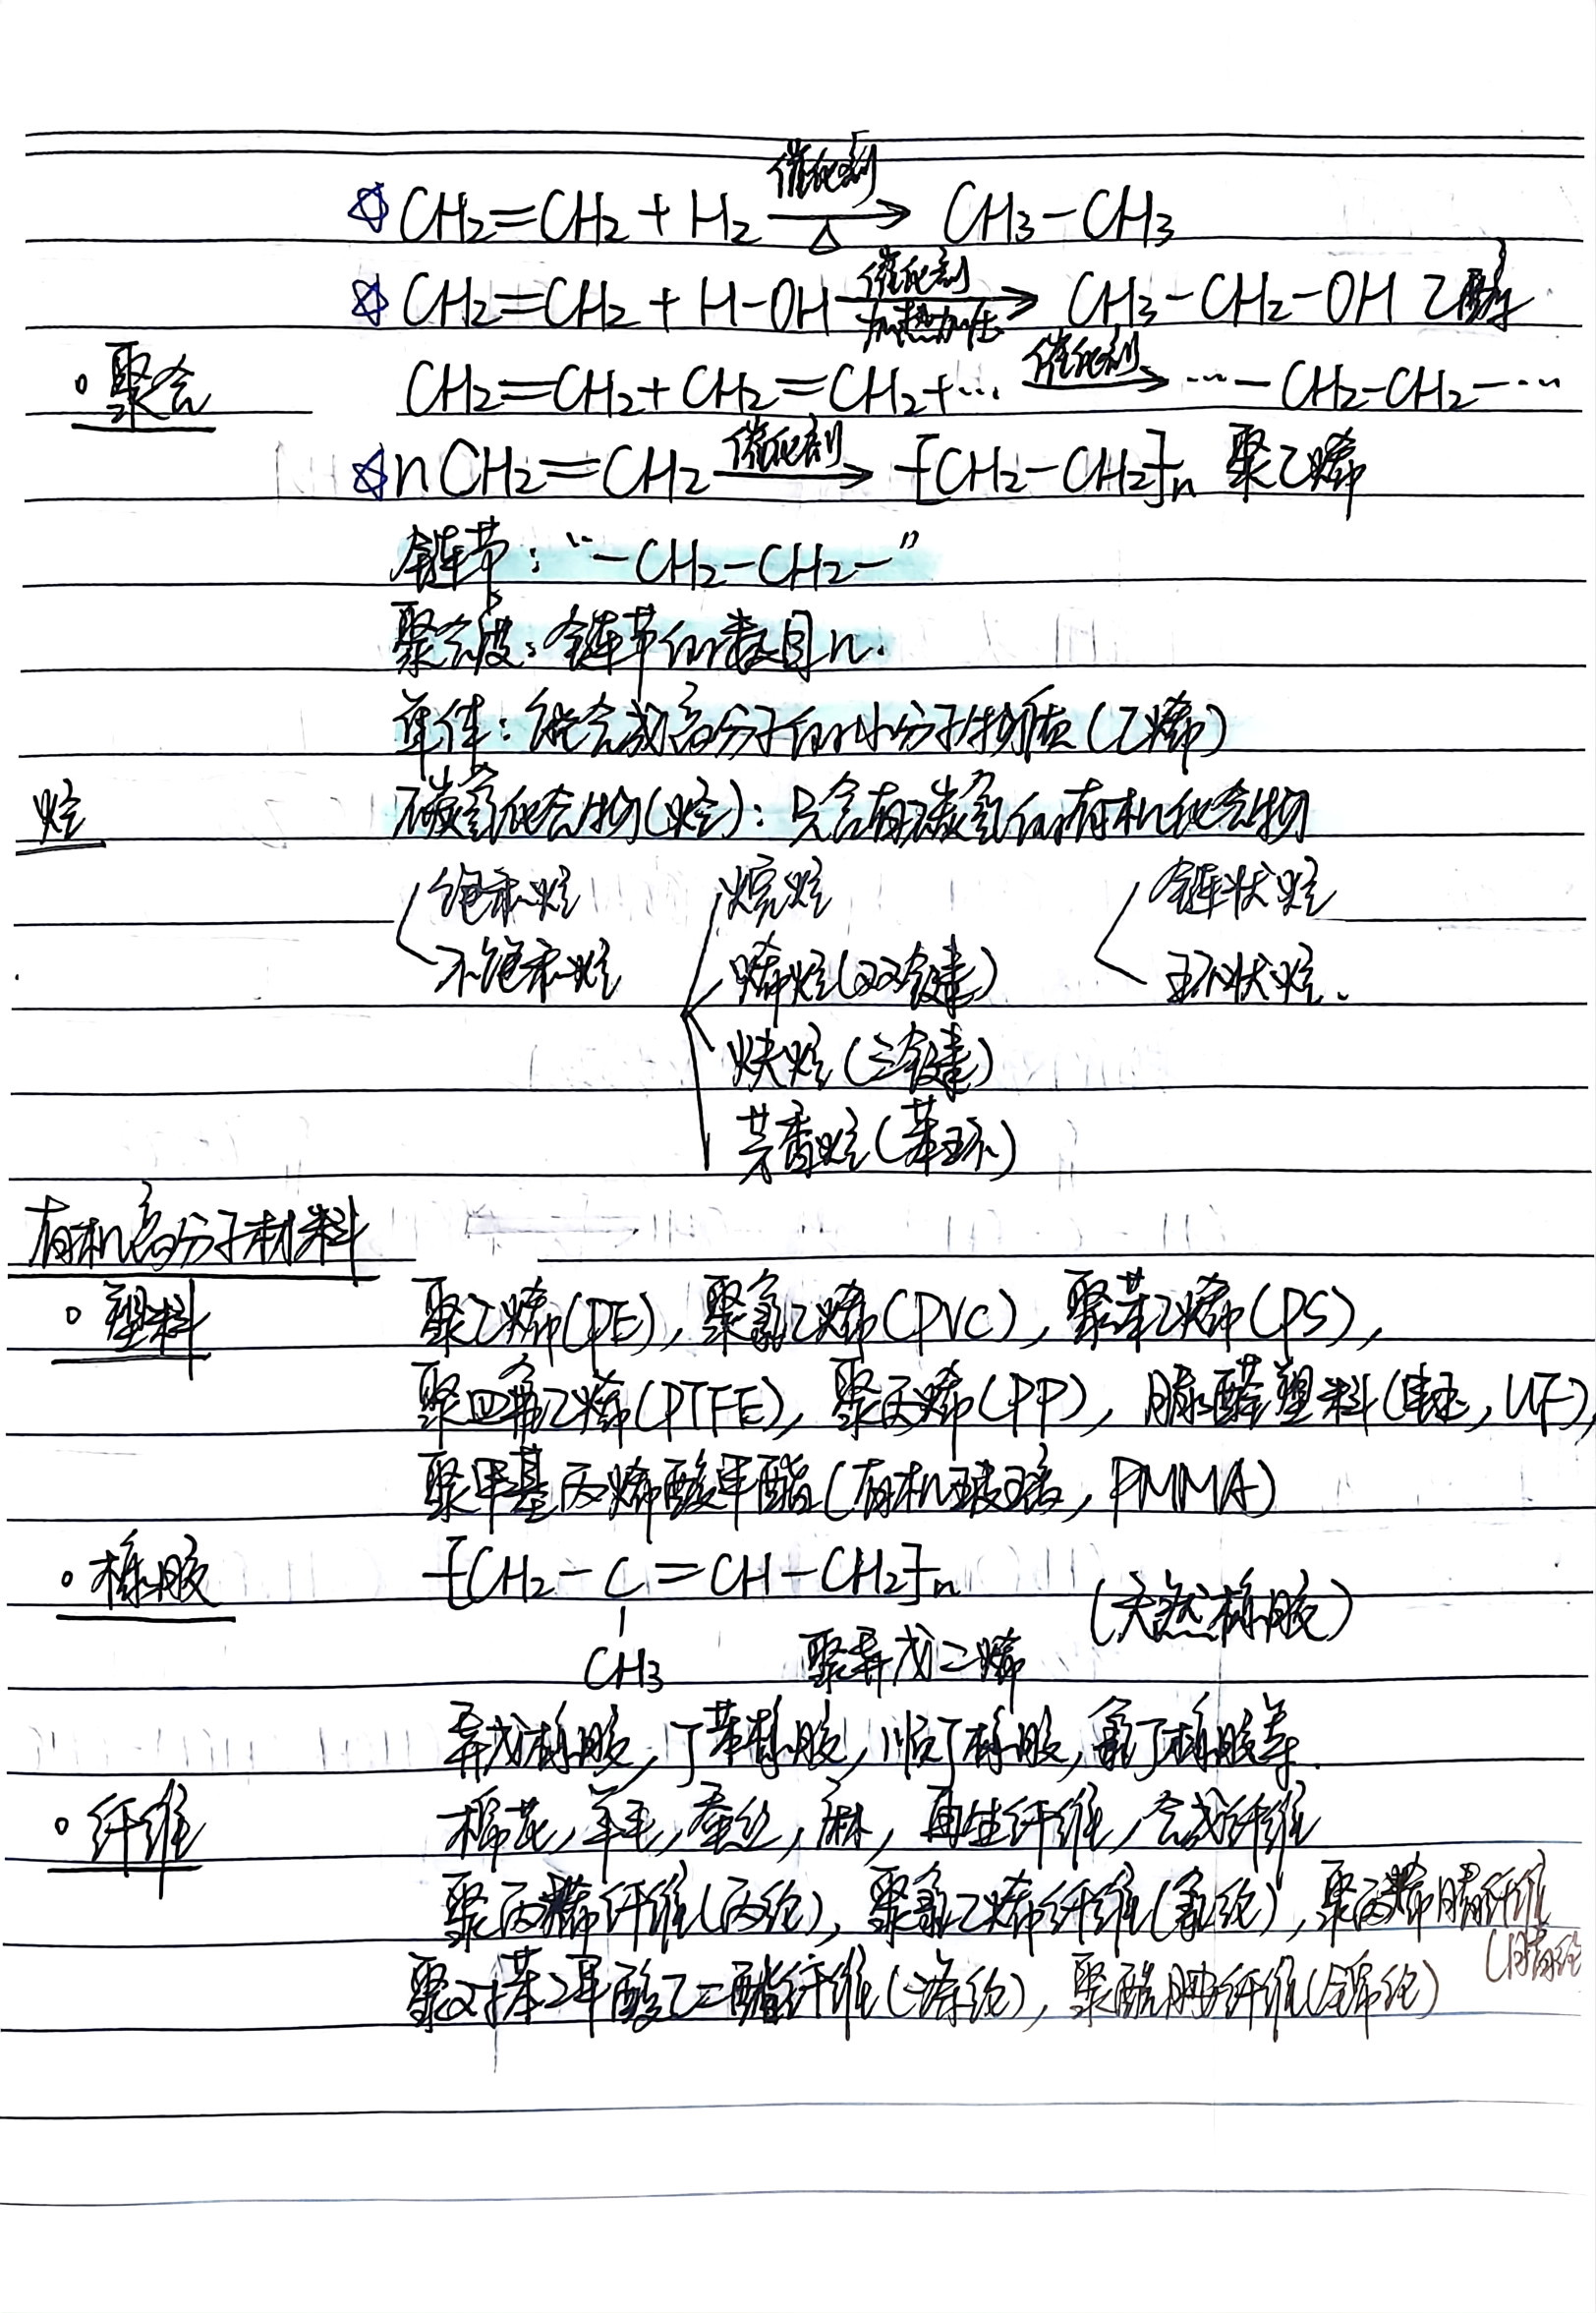 ☆ CH₂=CH₂ + H₂ —催化剂/△→ CH₃-CH₃
☆ CH₂=CH₂ + H-OH —催化剂/加热加压→ CH₃-CH₂-OH 乙醇
。聚合 CH₂=CH₂+CH₂=CH₂+… —催化剂→ …-CH₂-CH₂-…
☆ nCH₂=CH₂ —催化剂→ -[CH₂-CH₂]-n 聚乙烯
链节:“-CH₂-CH₂-”
聚合度:链节的数目n.
单体:能合成高分子的小分子物质(乙烯)
烃 碳氢化合物(烃):只含有碳氢的有机化合物
饱和烃 烷烃 链状烃
不饱和烃 烯烃(双键) 环状烃.
炔烃(三键)
芳香烃(苯环)
有机高分子材料
。塑料 聚乙烯(PE), 聚氯乙烯(PVC), 聚苯乙烯(PS),
聚四氟乙烯(PTFE), 聚丙烯(PP), 脲醛塑料(电玉, UF),
聚甲基丙烯酸甲酯(有机玻璃, PMMA)
。橡胶 -[CH₂-C=CH-CH₂]-n (天然橡胶)
CH₃ 聚异戊二烯
异戊橡胶, 丁苯橡胶, 顺丁橡胶, 氯丁橡胶等.
。纤维 棉花, 羊毛, 蚕丝, 麻, 再生纤维, 合成纤维
聚丙烯纤维(丙纶), 聚氯乙烯纤维(氯纶), 聚丙烯腈纤维
(腈纶
聚对苯二甲酸乙二酯纤维(涤纶), 聚酰胺纤维(锦纶)